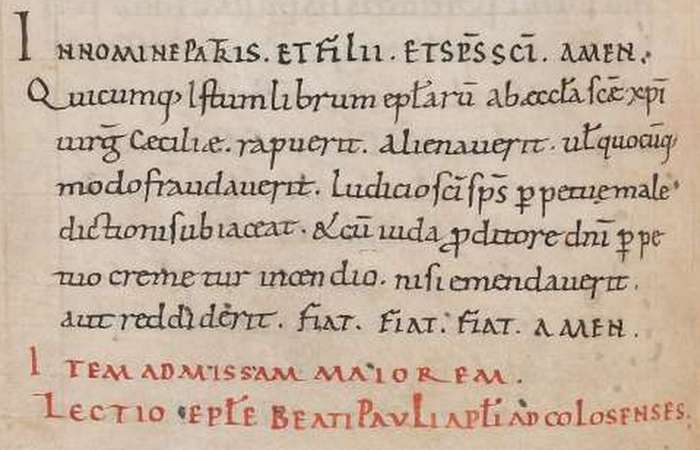 IN NOMINE PATRIS. ET FĪLII. ET SP̄S SC̄I. AMEN.
Quicumq; Istum librum epl̄arū ab æccl̄a sc̄ę xp̄i
uirḡ Ceciliæ. rapuerit. alienauerit. ul̄ quocūq;
modo fraudauerit. Iudicio sc̄i sp̄s ꝑpetuę male
dictioni subiaceat. & cū iuda ꝓditore dn̄i ꝑpe
tuo cremetur incendio. nisi emendauerit.
aut reddiderit. FIAT. FIAT. FIAT. AMEN.
ITEM AD MISSAM MAIOREM.
LECTIO EPL̄E BEATI PAVLI APL̄I AD COLOSENSES.